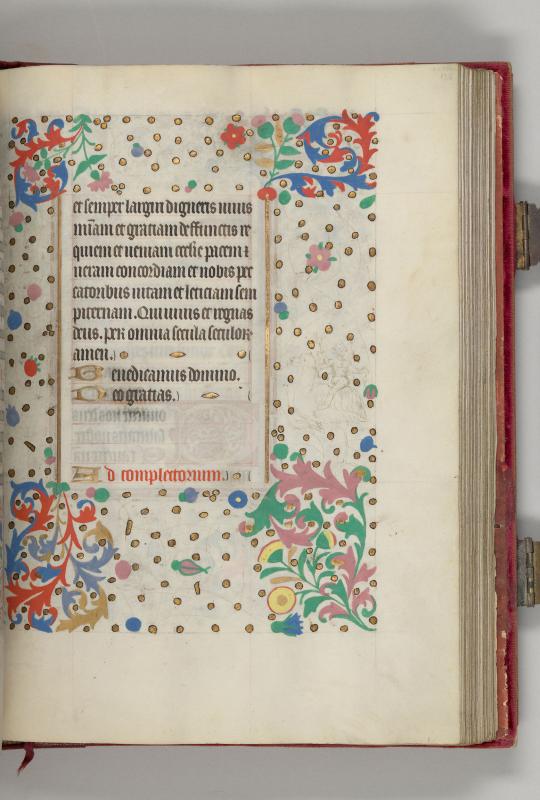 et semper largiri digneris vivis
m̄iam et gratiam deffunctis re
quiem et veniam ecclie pacem ⁊
veram concordiam et nobis pec
catoribus vitam et leticiam sem
piternam. Qui vivis et regnas
deus. per omnia secula seculor
amen.
Benedicamus domino.
Deo gratias.
Ad complectorium.